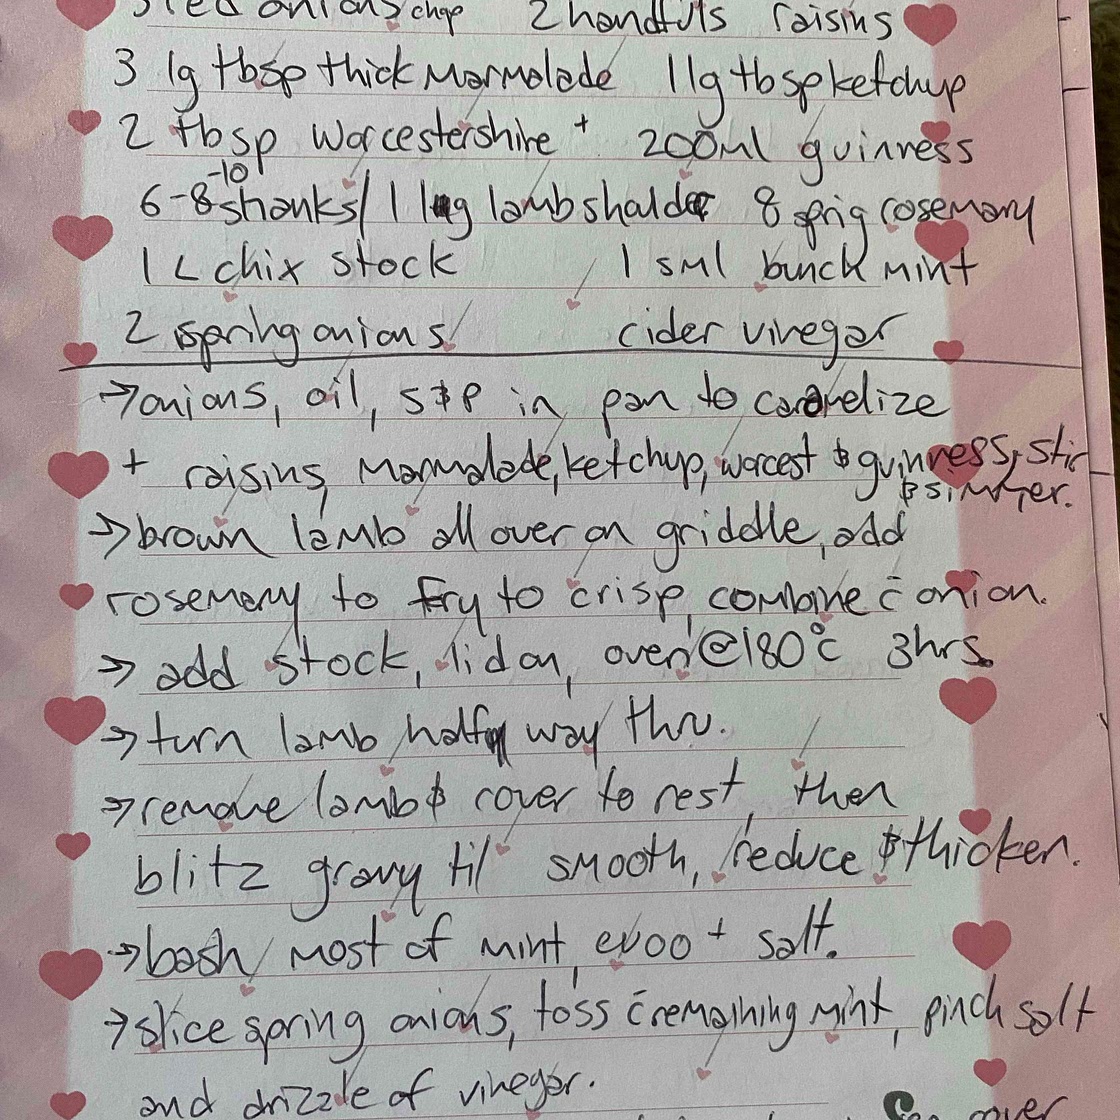 red onions chop 2 handfuls raisins
3 lg tbsp thick marmalade 1 lg tbsp ketchup
2 tbsp worcestershire + 200ml guinness
6-8-10 shanks/ 1 lg lamb shoulder 8 sprig rosemary
1 L chix stock 1 sml bunch mint
2 spring onions cider vinegar
→ onions, oil, s&p in pan to caramelize
+ raisins, marmalade, ketchup, worcest & guinness, stir
& simmer.
→ brown lamb all over on griddle, add
rosemary to fry to crisp, combine c̄ onion.
→ add stock, lid on, oven @ 180°c 3hrs.
→ turn lamb half way thru.
→ remove lamb & cover to rest, then
blitz gravy til smooth, reduce & thicken.
→ bash most of mint, evoo + salt.
→ slice spring onions, toss c̄ remaining mint, pinch salt
and drizzle of vinegar.
over